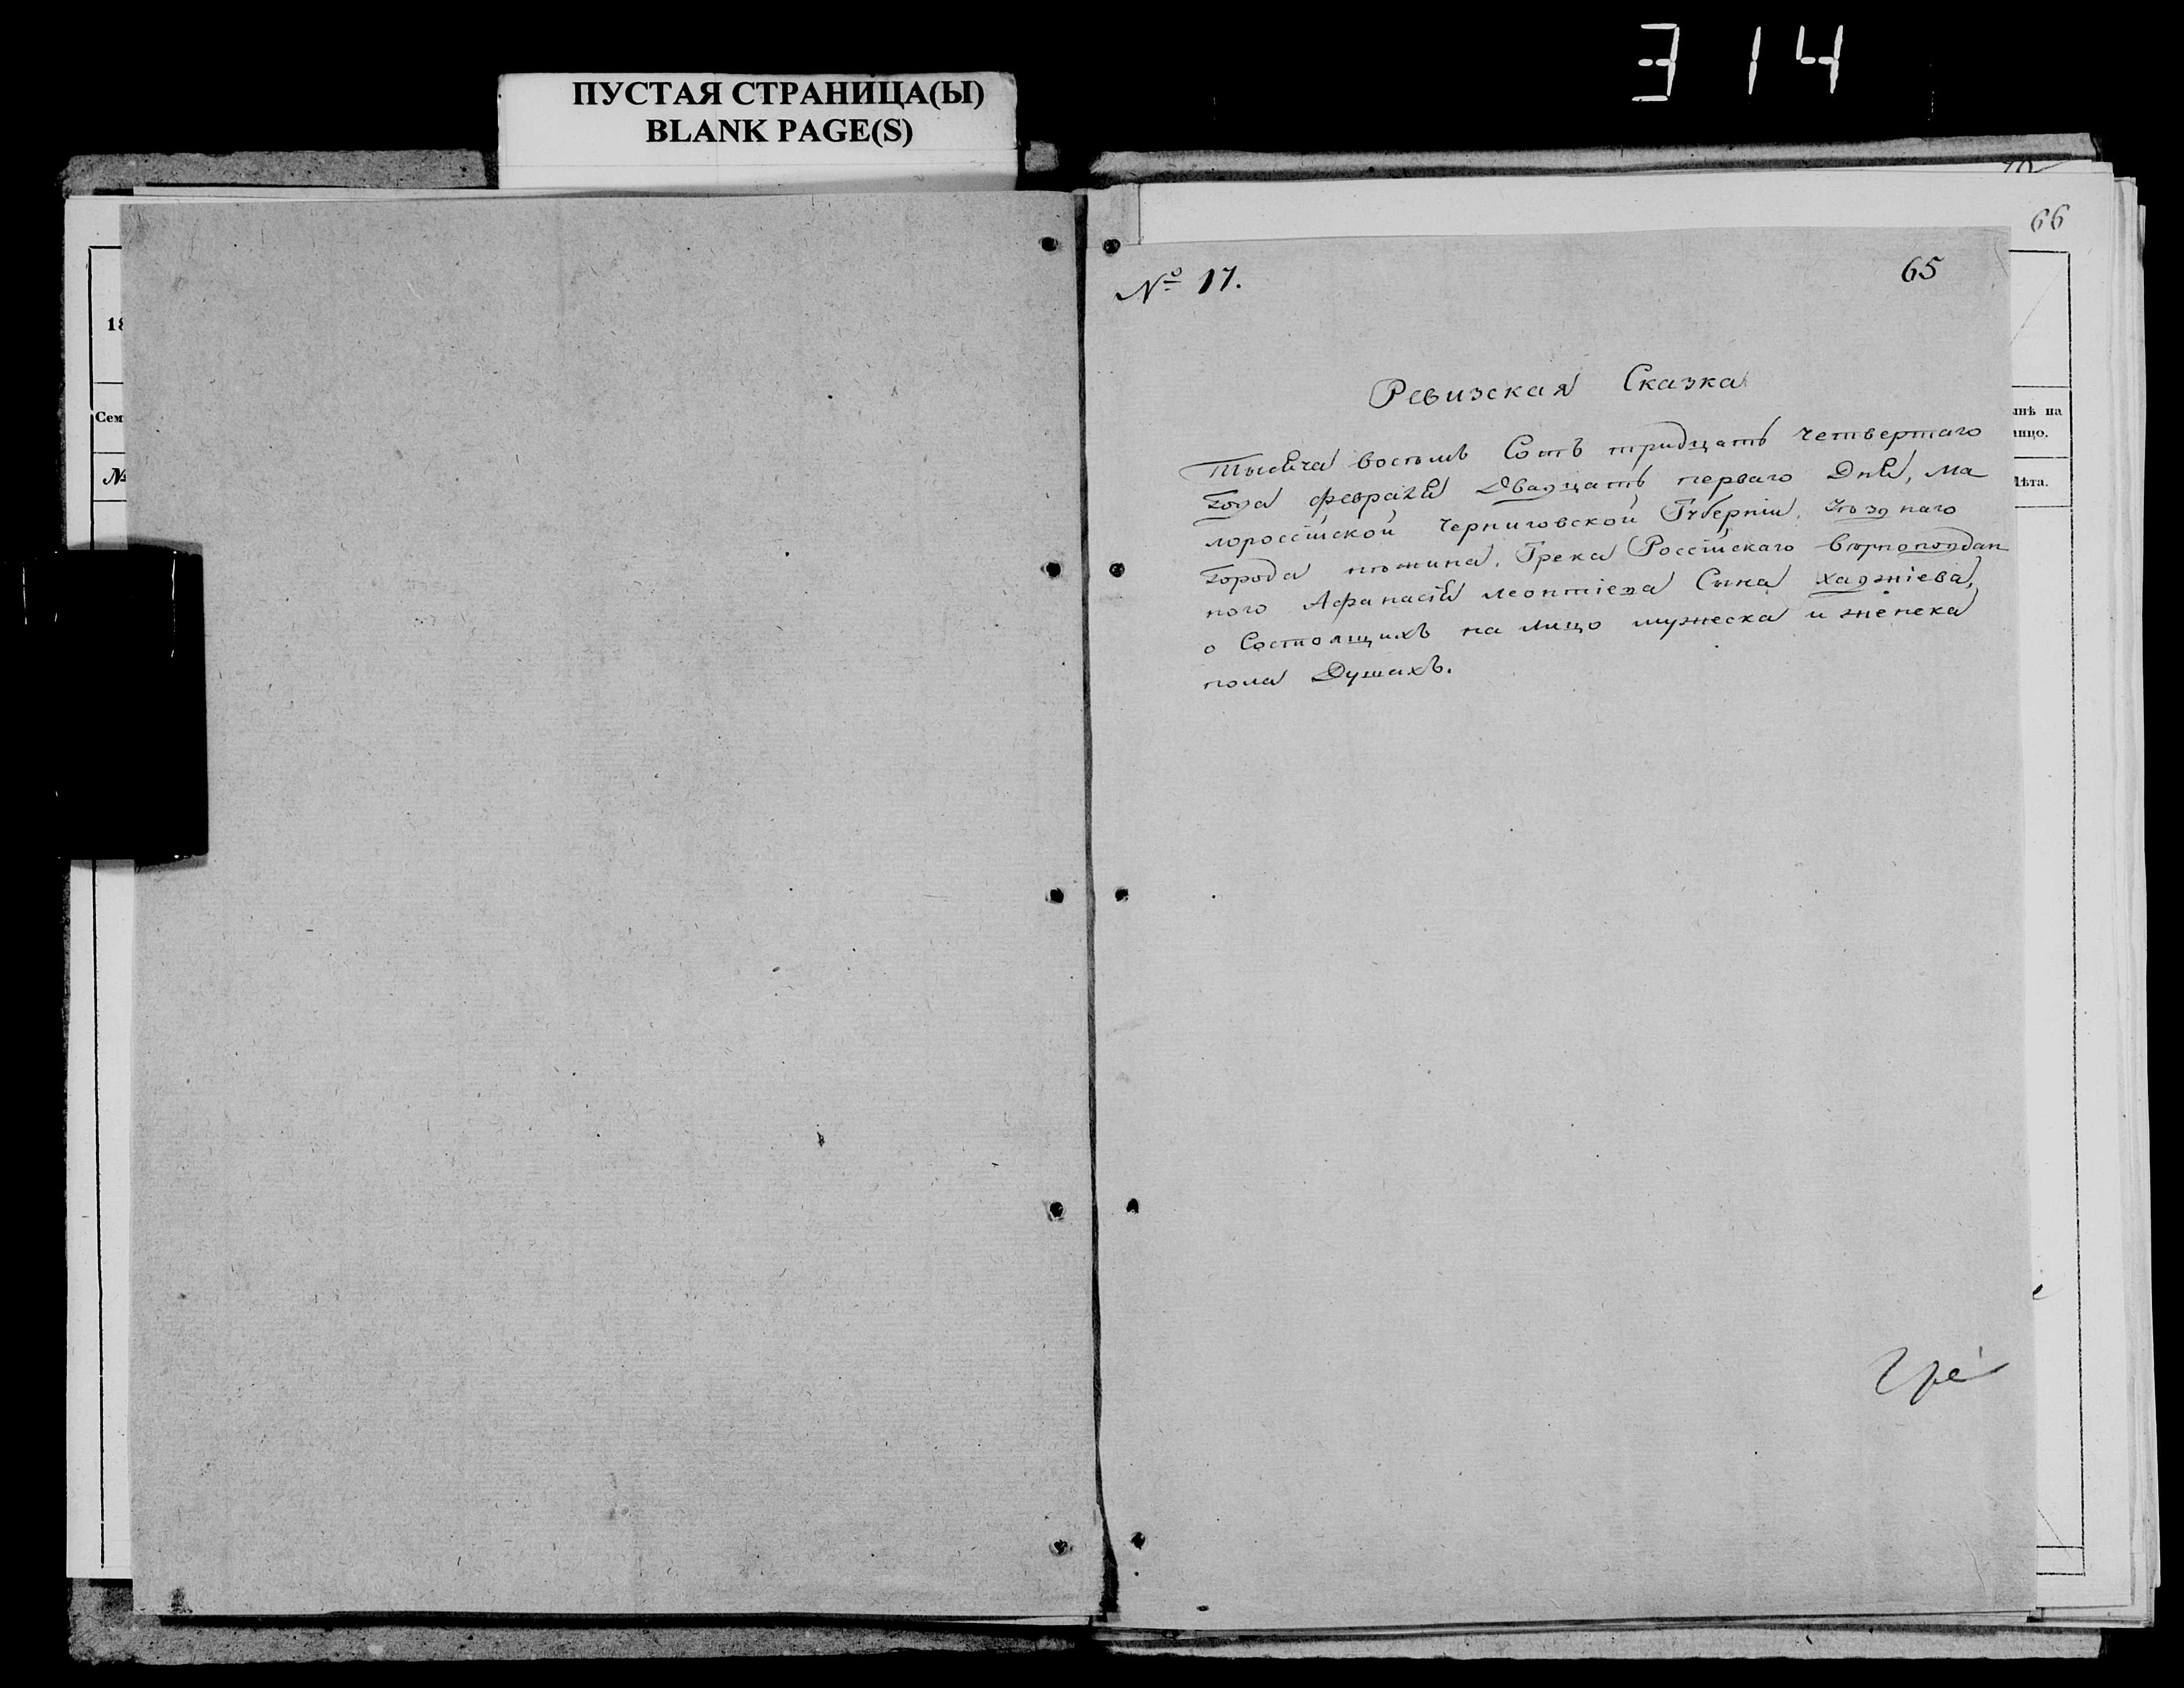 Э 14
ПУСТАЯ СТРАНИЦА(Ы)
BLANK PAGE(S)
66
№ 17.
65
18
Сем
№
Ревизская Сказка
Тысяча восемь Сотъ тридцать четвертаго
Года февраля Двадцать перваго Дня, Ма
лороссійской Черниговской Губерніи. Уѣзднаго
Города нѣжина. Грека Россійскаго Вѣрноподдан
ного Афанасія леонтіева Сына хаджіева,
о Состоящихъ на лицо мужеска и женска
пола Душахъ.
ынѣ на
ицо.
Лѣта.
Гре